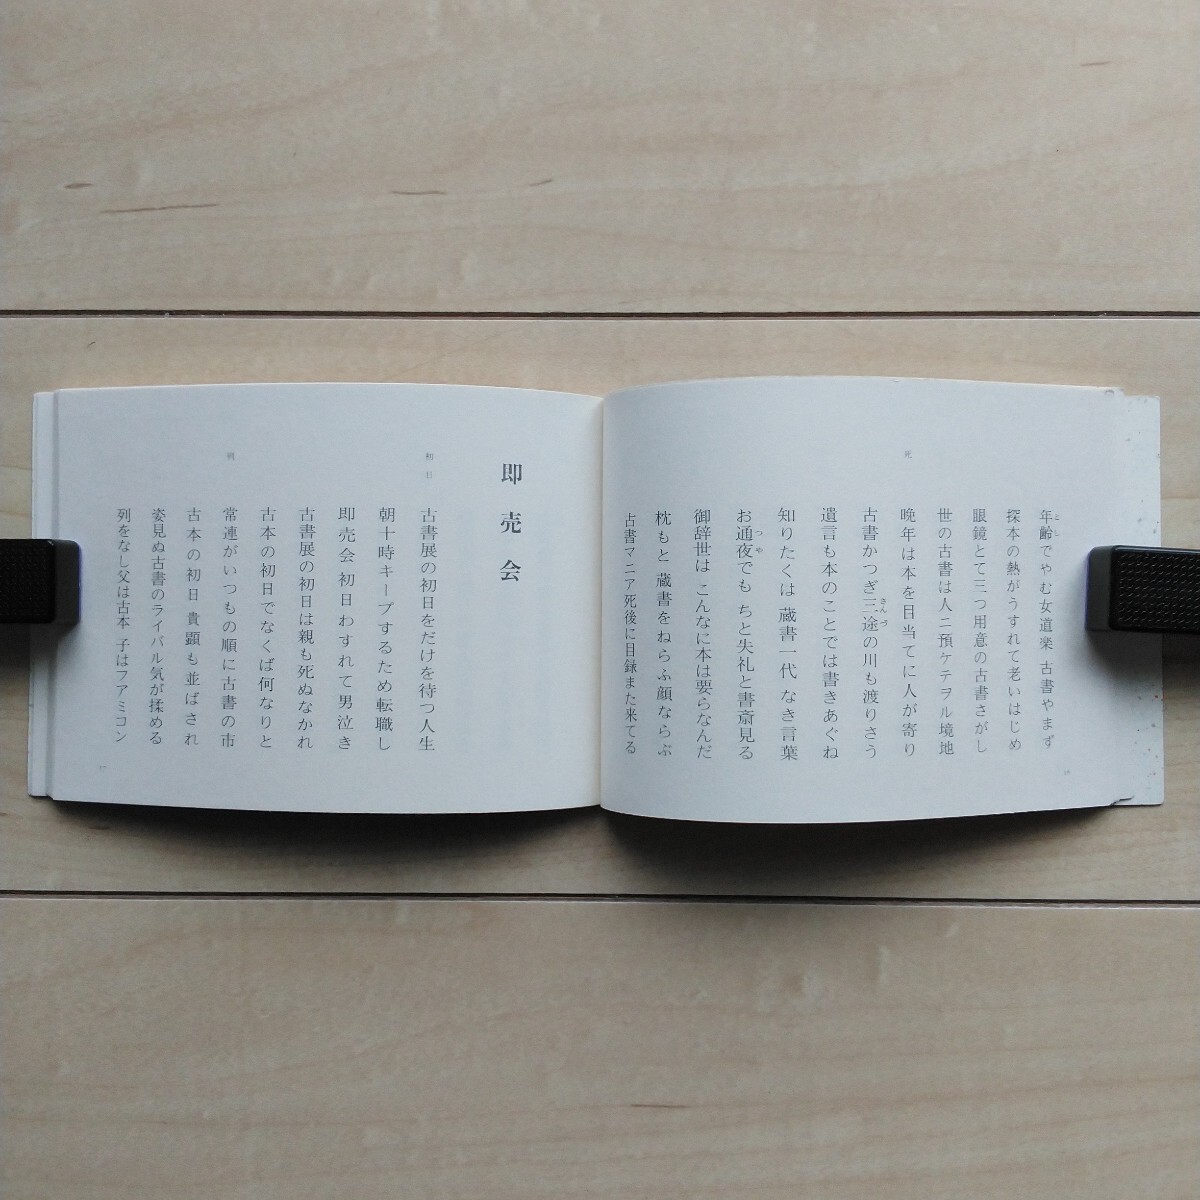 年齢でやむ女道楽 古書やまず
探本の熱がうすれて老いはじめ
眼鏡とて三つ用意の古書さがし
世の古書は人ニ預ケテヲル境地
死
晩年は本を目当てに人が寄り
古書かつぎ三途の川も渡りさう
遺言も本のことでは書きあぐね
知りたくは 蔵書一代 なき言葉
お通夜でも ちと失礼と書斎見る
御辞世は こんなに本は要らなんだ
枕もと 蔵書をねらふ顔ならぶ
古書マニア死後に目録また来てる
即売会
初日
古書展の初日をだけを待つ人生
朝十時キープするため転職し
即売会 初日わすれて男泣き
古書展の初日は親も死ぬなかれ
古本の初日でなくば何なりと
常連がいつもの順に古書の市
古本の初日 貴顕も並ばされ
姿見ぬ古書のライバル気が揉める
列をなし父は古本 子はファミコン